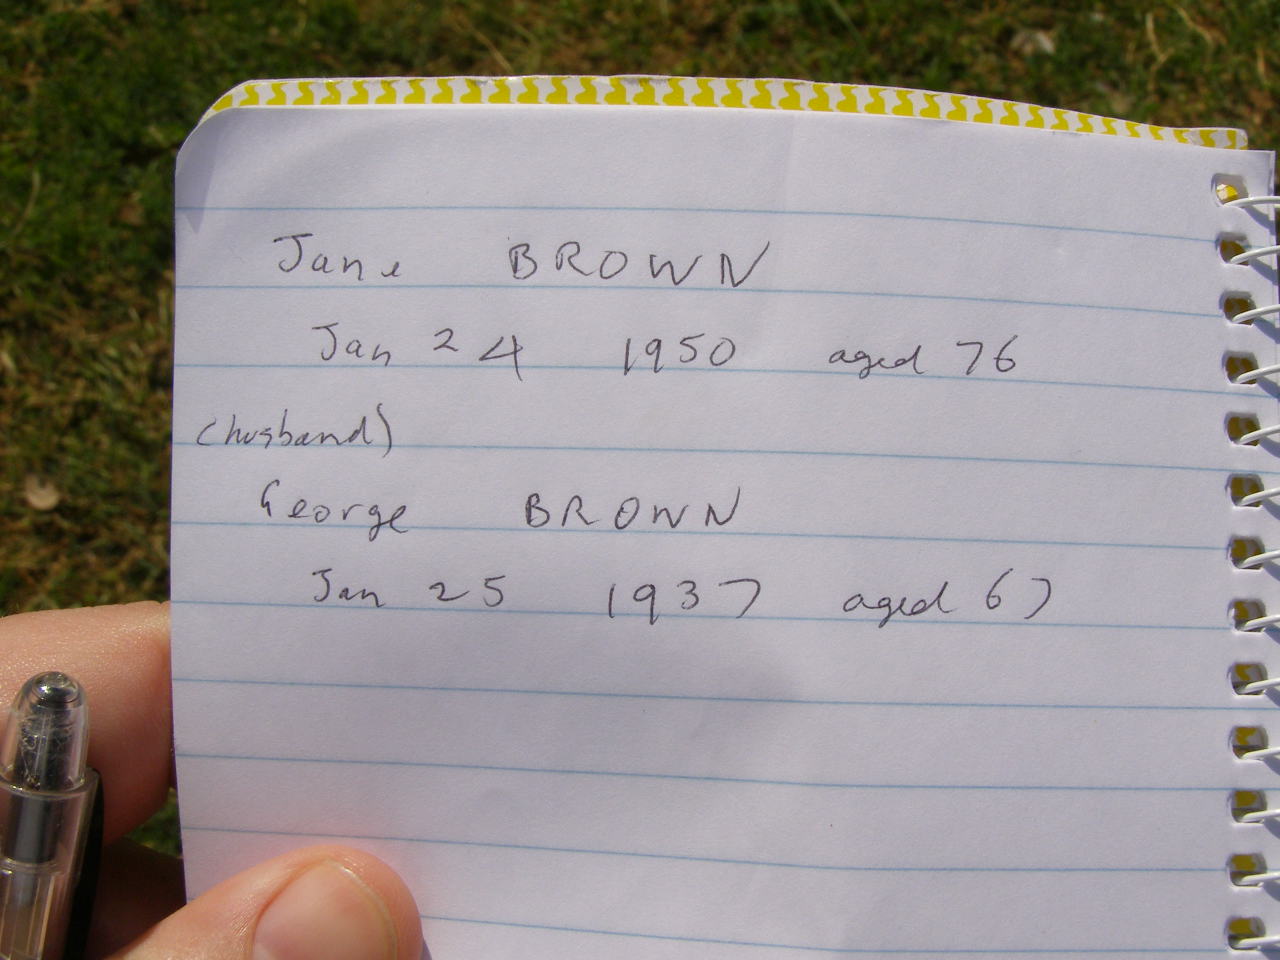 Jane BROWN
Jan 24 1950 aged 76
(husband)
George BROWN
Jan 25 1937 aged 67